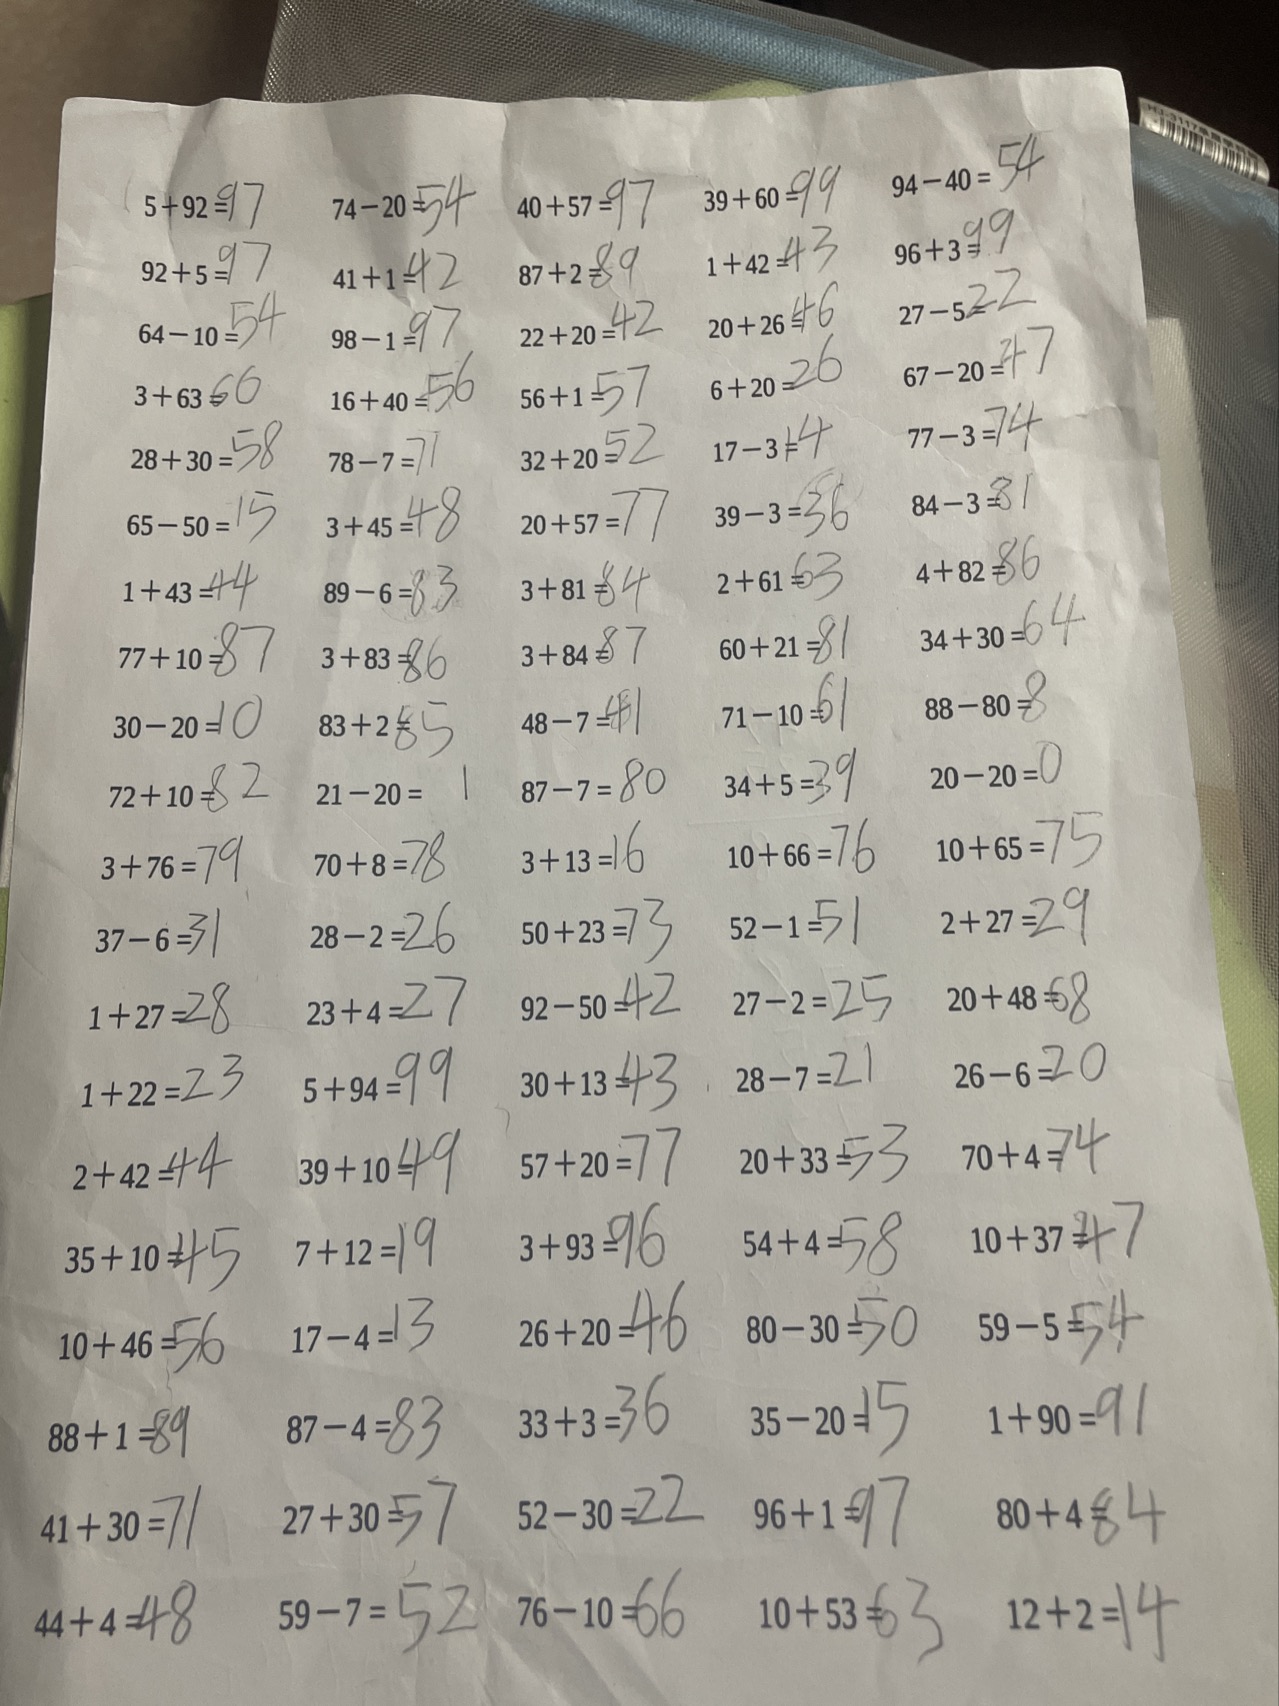 5+92=97 74-20=54 40+57=97 39+60=99 94-40=54
92+5=97 41+1=42 87+2=89 1+42=43 96+3=99
64-10=54 98-1=97 22+20=42 20+26=46 27-5=22
3+63=66 16+40=56 56+1=57 6+20=26 67-20=47
28+30=58 78-7=71 32+20=52 17-3=14 77-3=74
65-50=15 3+45=48 20+57=77 39-3=36 84-3=81
1+43=44 89-6=83 3+81=84 2+61=63 4+82=86
77+10=87 3+83=86 3+84=87 60+21=81 34+30=64
30-20=10 83+2=85 48-7=41 71-10=61 88-80=8
72+10=82 21-20=1 87-7=80 34+5=39 20-20=0
3+76=79 70+8=78 3+13=16 10+66=76 10+65=75
37-6=31 28-2=26 50+23=73 52-1=51 2+27=29
1+27=28 23+4=27 92-50=42 27-2=25 20+48=68
1+22=23 5+94=99 30+13=43 28-7=21 26-6=20
2+42=44 39+10=49 57+20=77 20+33=53 70+4=74
35+10=45 7+12=19 3+93=96 54+4=58 10+37=47
10+46=56 17-4=13 26+20=46 80-30=50 59-5=54
88+1=89 87-4=83 33+3=36 35-20=15 1+90=91
41+30=71 27+30=57 52-30=22 96+1=97 80+4=84
44+4=48 59-7=52 76-10=66 10+53=63 12+2=14